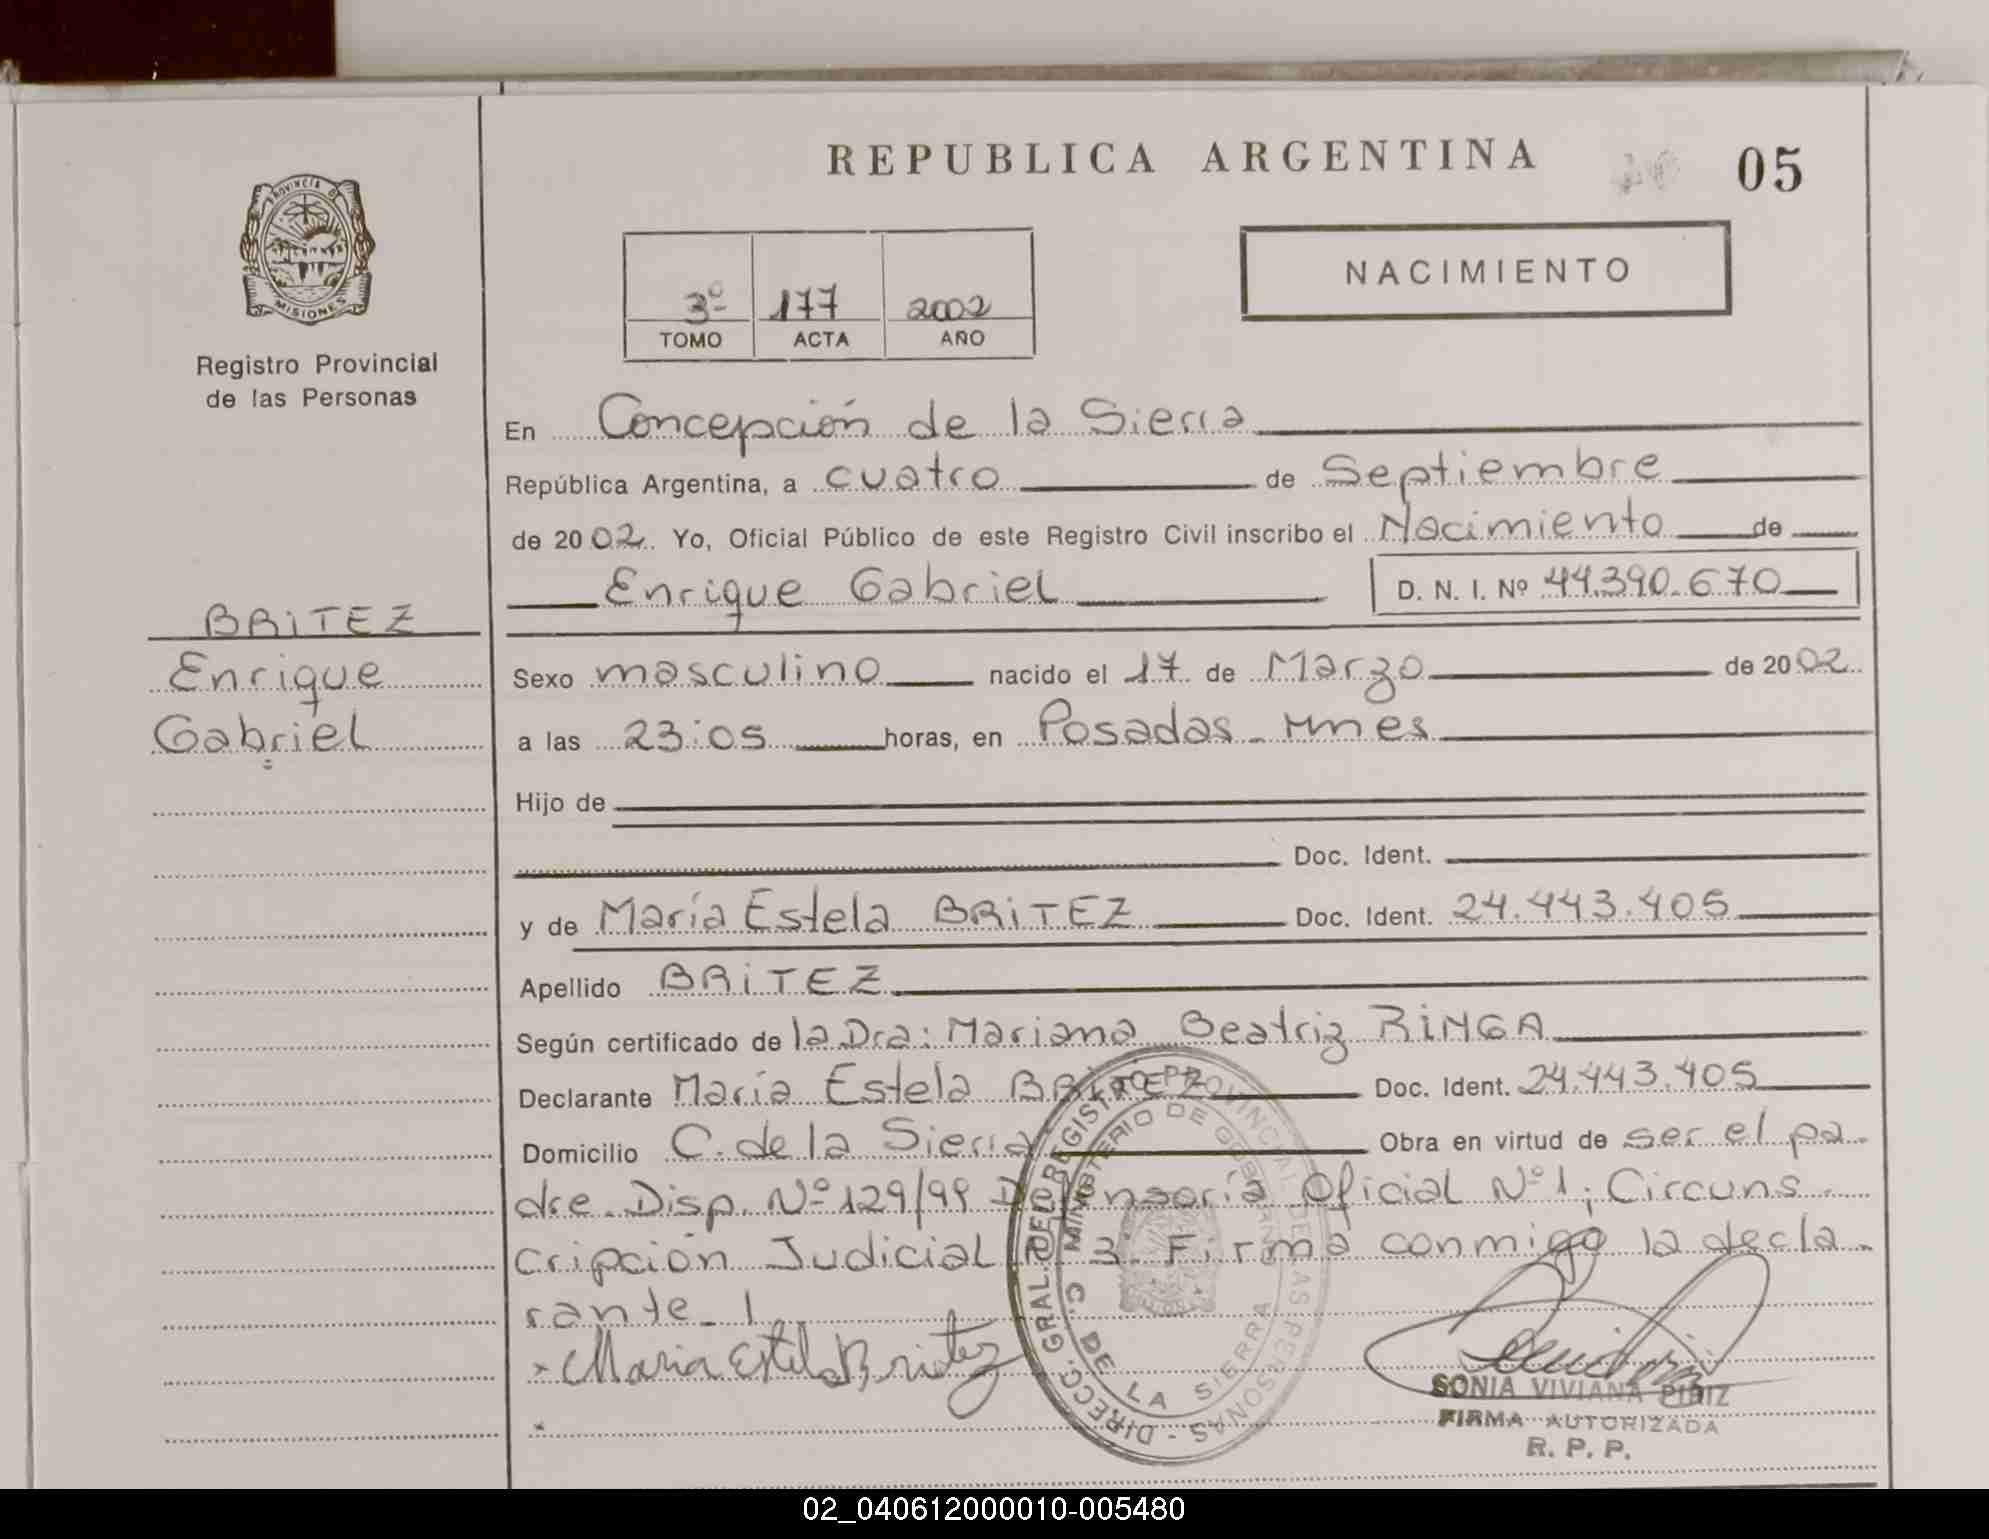 REPUBLICA ARGENTINA
05
PROVINCIA DE
MISIONES
Registro Provincial
de las Personas
3º 177 2002
TOMO ACTA AÑO
NACIMIENTO
En Concepción de la Sierra
República Argentina, a cuatro de Septiembre
de 2002. Yo, Oficial Público de este Registro Civil inscribo el Nacimiento de
Enrique Gabriel D. N. I. Nº 44.390.670
BRITEZ
Enrique
Gabriel
Sexo masculino nacido el 17 de Marzo de 2002
a las 23:05 horas, en Posadas - Mnes
Hijo de
Doc. Ident.
y de María Estela BRITEZ Doc. Ident. 24.443.405
Apellido BRITEZ
Según certificado de la Dra: Mariana Beatriz RINGA
Declarante María Estela BRITEZ Doc. Ident. 24.443.405
Domicilio C. de la Sierra Obra en virtud de ser el pa-
dre. Disp. Nº 129/99 Defensoría Oficial Nº 1, Circuns-
cripción Judicial 3. Firma conmigo la decla-
rante.
Maria Estela Britez
DIRECC. GRAL. DEL REGISTRO PROVINCIAL DE LAS PERSONAS -
MINISTERIO DE GOBIERNO
C. DE LA SIERRA
SONIA VIVIANA PIRIZ
FIRMA AUTORIZADA
R. P. P.
02_040612000010-005480